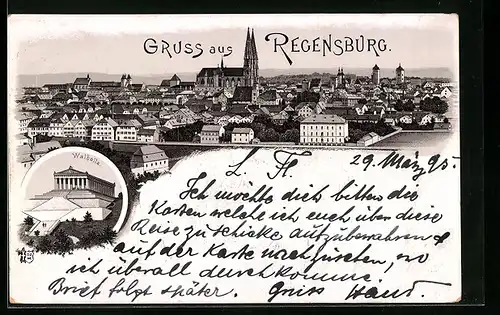 GRUSS aus REGENSBURG.
Walhalla.
L. H. 29. März 95.
Ich möchte dich bitten die
Karten welche ich euch über diese
Reise zu schicke aufzubewahren &
auf der Karte nachzusehen, wo
ich überall durchkomme.
Brief folgt später. Gruss Hans.